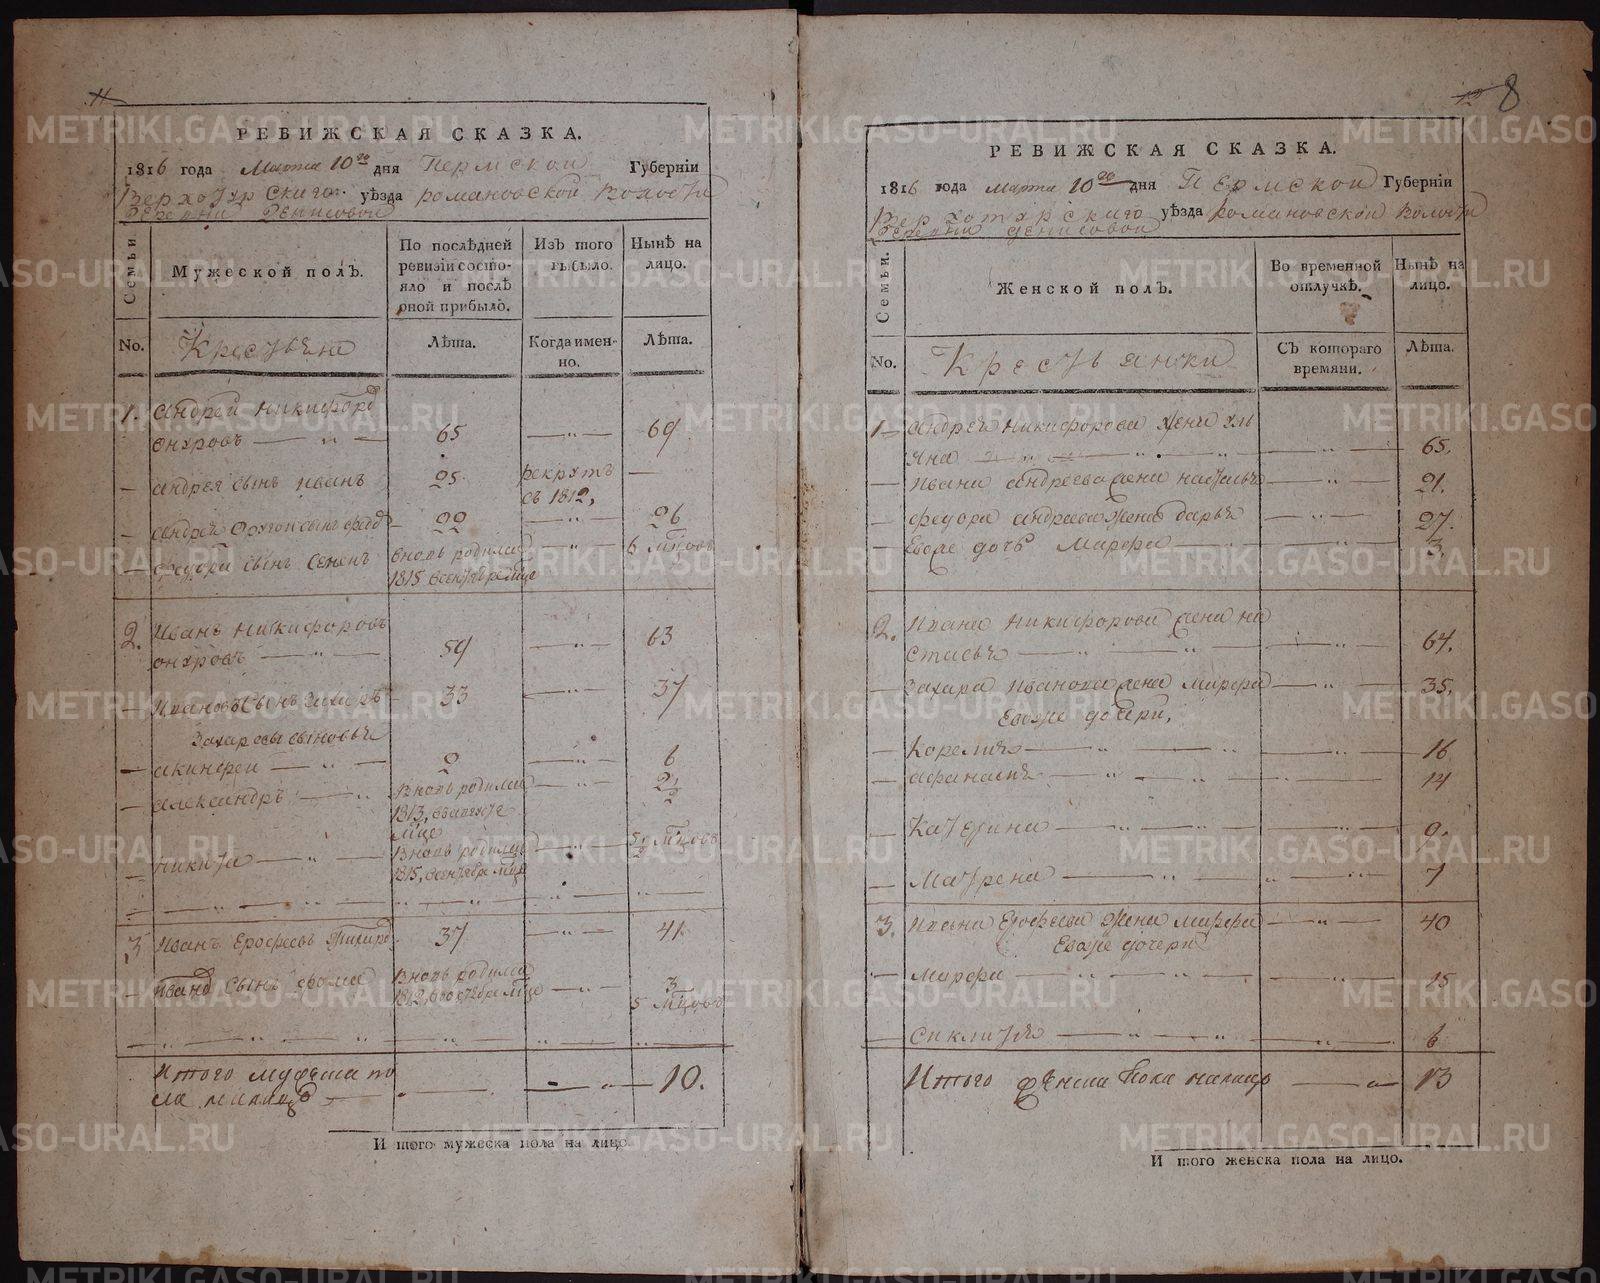 11
РЕВИЖСКАЯ СКАЗКА.
1816 года Марта 10го дня Пермской Губерніи
Верхотурскаго уѣзда Романовской Волости
Деревни Денисовой
Семьи
Мужеской полъ.
По послѣдней ревизіи состояло и послѣ оной прибыло.
Изъ того выбыло.
Нынѣ на лицо.
No.
Крестьяна
Лѣта.
Когда именно.
Лѣта.
1. Андрей Никифоров
65 69
Андрея сынъ Иванъ 25 рекрутъ
съ 1812,
Андрея другой сынъ 22 26
Федора сынъ Семенъ вновь родился 6 мцовъ
1815 мце
2. Иванъ Никифоровъ
59 63
Ивановъ сынъ Захаръ 33 37
Захаровы сыновья
Акинфеи 2 6
Александръ вновь родился 2 1/2
1813,
мце
Никита вновь родился 5 1/2 мцовъ
1815, мце
3 Иванъ Ерофеевъ 37 41
Ивана сынъ Фома вновь родился 3
1812, мце 5 мцовъ
Итого мужеска по
ла налицо 10.
И того мужеска пола на лицо.
12 8
РЕВИЖСКАЯ СКАЗКА.
1816 года марта 10го дня Пермской Губерніи
Верхотурскаго уѣзда Романовской Волости
Деревни Денисовой
Семьи.
Женской полъ.
Во временной отлучкѣ.
Нынѣ на лицо.
No.
Крестьянки
Съ котораго времяни.
Лѣта.
1 Андрея Никифорова жена Уль
яна 65.
Ивана Андреева жена Наталья 21.
Федора Андреева жена Дарья 27.
Евоже дочь Марфа 3.
2. Ивана Никифорова жена На
стасья 64.
Захара Иванова жена Марфа 35.
Евоже дочери,
16
Афанасья 14
Катерина 9.
Матрена 7
3. Ивана Ерофеева жена Марфа 40
Евоже дочери
Марфа 15
6
Итого женска пола налицо 13
И того женска пола на лицо.
METRIKI.GASO-URAL.RU